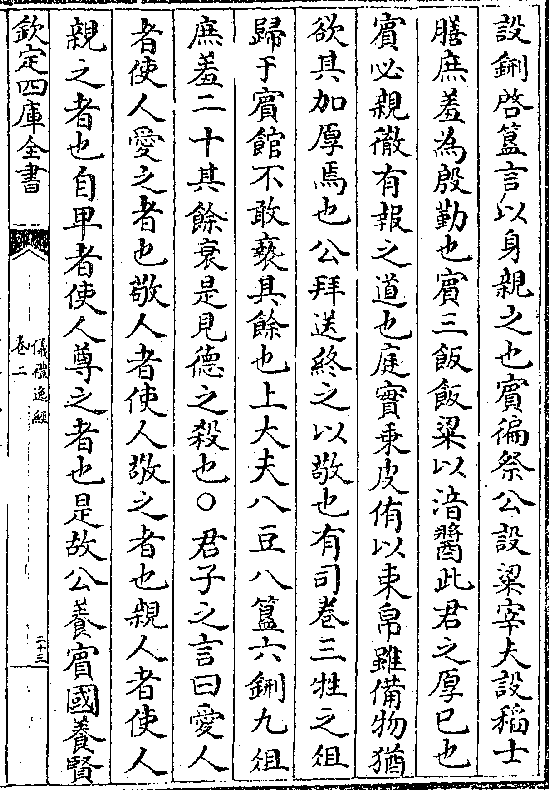 設鉶啓簋言以身親之也賓徧祭公設粱宰夫設稻士
膳庶羞為殷勤也賓三飯飯粱以湆醬此君之厚已也
賓必親徹有報之道也庭實乗皮侑以束帛雖備物猶
欲其加厚焉也公拜送終之以敬也有司卷三牲之俎
歸于賓館不敢䙝其餘也上大夫八豆八簋六鉶九俎
庶羞二十其餘衰是見德之殺也○君子之言曰愛人
者使人愛之者也敬人者使人敬之者也親人者使人
親之者也自卑者使人尊之者也是故公養賓國養賢
欽定四庫全書
儀禮逸經
卷二
二十三